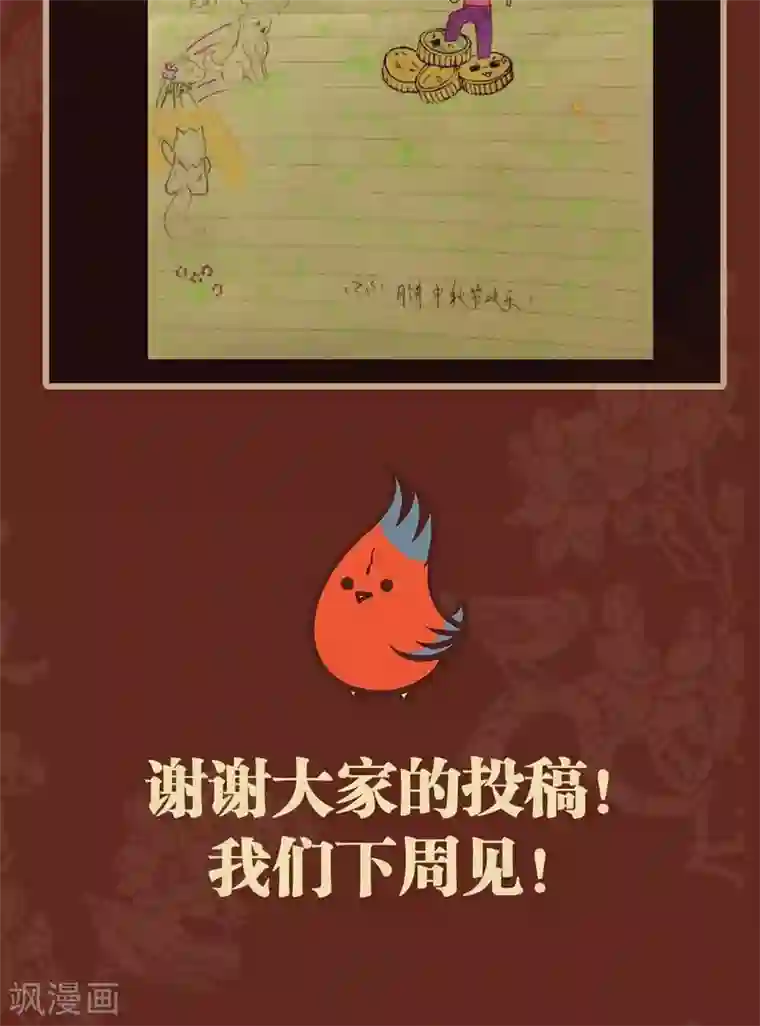 月饼 中秋节快乐！
谢谢大家的投稿！
我们下周见！
飒漫画